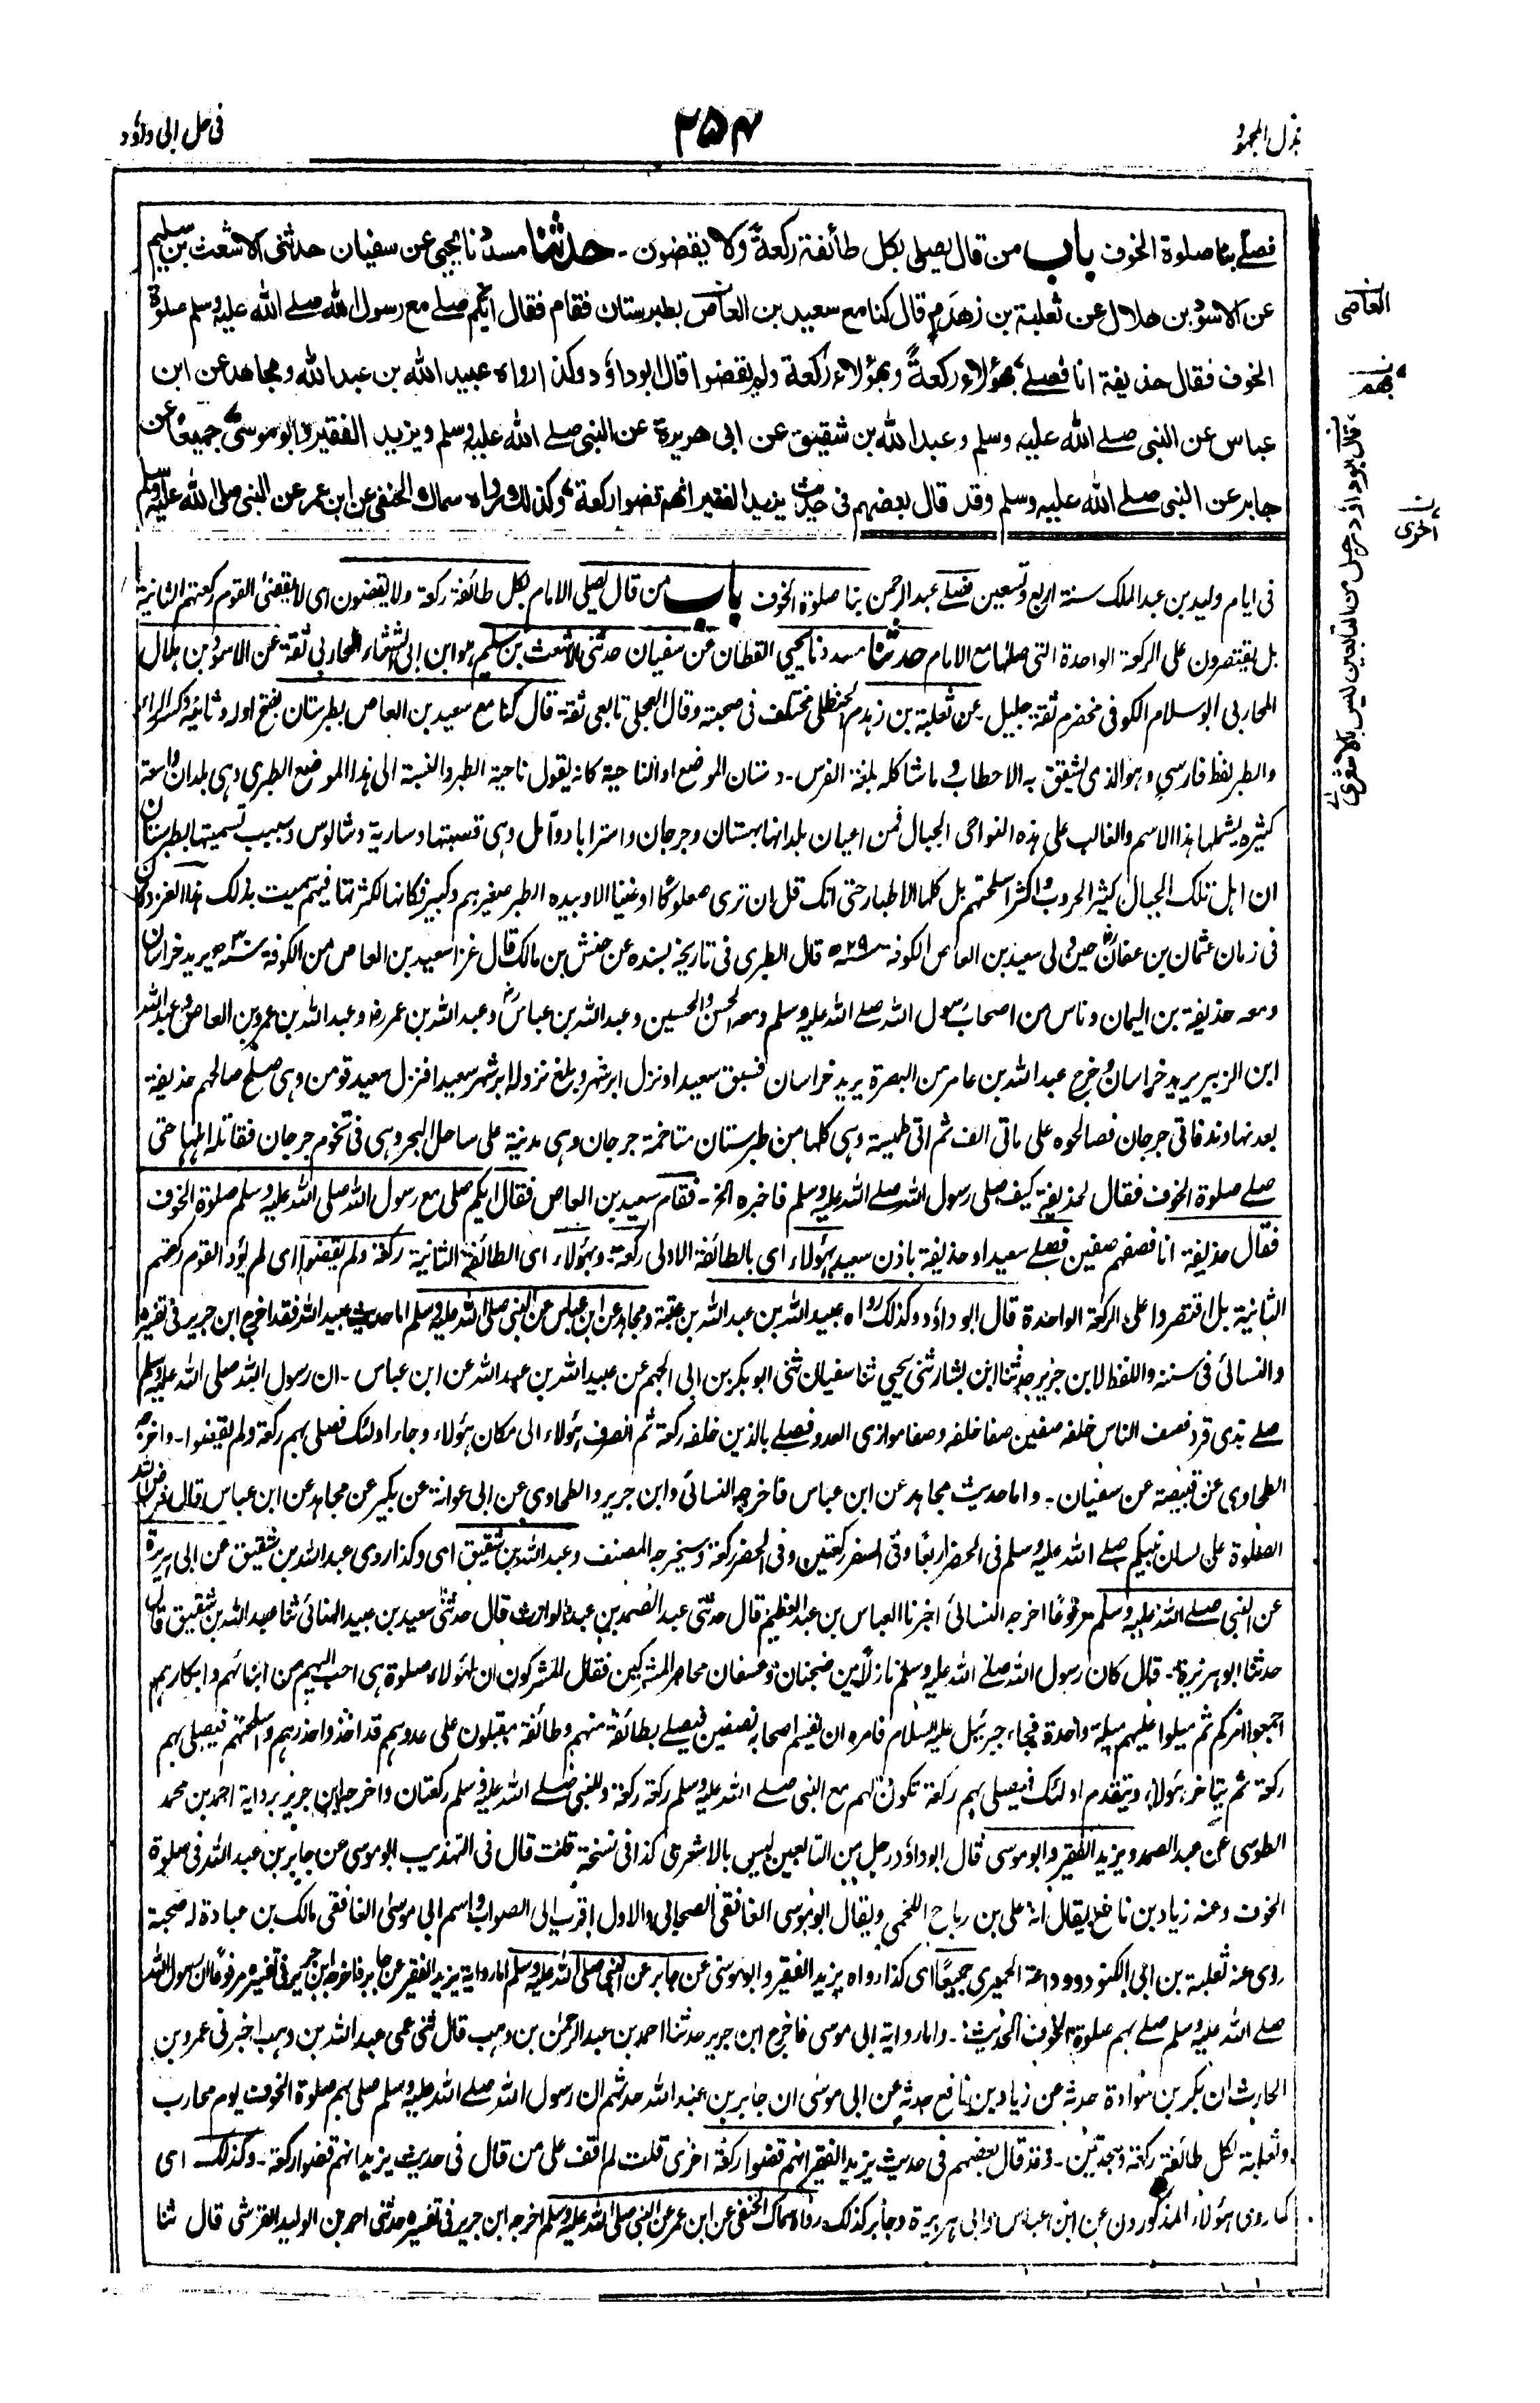 بذل المجهود
٢٥٤
فی حل ابی داؤد
فصلے بنا صلوة الخوف باب من قال یصلی بکل طائفة رکعة ولا یقضون۔ حدثنا مسدد نا یحیی عن سفیان حدثنی الاشعث بن سلیم
عن الاسود بن هلال عن ثعلبة بن زهدم قال کنا مع سعید بن العاص بطبرستان فقام فقال ایکم صلے مع رسول الله صلے الله علیه وسلم صلوة
الخوف فقال حذیفة انا فصلے بهؤلاء رکعةً وبهؤلاء رکعة ولم یقضوا قال ابوداؤد وکذا رواه عبید الله بن عبد الله ومجاهد عن ابن
عباس عن النبی صلے الله علیه وسلم وعبد الله بن شقیق عن ابی هریرة عن النبی صلے الله علیه وسلم ویزید الفقیر وابو موسی جمیعا عن
جابر عن النبی صلے الله علیه وسلم وقد قال بعضهم فی حدیث یزید الفقیر انهم قضوا رکعة وکذلک رواه سماک الحنفی عن ابن عمر عن النبی صلی الله علیه وسلم
العاصی
بهم
اخری
قال ابو داؤد رجل من التابعین لیس بالاشعری
فی ایام ولید بن عبد الملک سنة اربع وتسعین فصلے عبد الرحمن بنا صلوة الخوف باب من قال یصلی الامام بکل طائفة رکعة ولا یقضون ای لا یقضی القوم رکعتهم الثانیة
بل یقتصرون علی الرکعة الواحدة التی صلها مع الامام حدثنا مسدد نا یحیی القطان عن سفیان حدثنی الاشعث بن سلیم هو ابن ابی الشعثاء المحاربی ثقة عن الاسود بن هلال
المحاربی ابو سلام الکوفی مخضرم ثقة جلیل۔ عن ثعلبة بن زهدم الحنظلی مختلف فی صحبته وقال العجلی تابعی ثقة۔ قال کنا مع سعید بن العاص بطبرستان بفتح اوله وثانیه وکسر الراء
والطبر لفظ فارسی وهو الذی یشقق به الاحطاب وما شاکله بلغة الفرس۔ وستان الموضع او الناحیة کانه یقول ناحیة الطبر والنسبة الی هذا الموضع الطبری وهی بلدان واسعة
کثیره یشملها هذا الاسم والغالب علی هذه النواحی الجبال فمن اعیان بلدانها دهستان وجرجان واستراباد وآمل وهی قصبتها وساریة وشالوس وسبب تسمیتها بطبرستان
ان اهل تلک الجبال کثیر الحروب واکثر اسلحتهم بل کلها الاطبار حتی انک قل ان تری صعلوکا او غنیا الا وبیده الطبر صغیرهم وکبیرهم فکانها لکثرتها فیهم سمیت بذلک هذا الغزو کان
فی زمان عثمان بن عفان حین ولی سعید بن العاص الکوفة ٢٩ه قال الطبری فی تاریخه بسنده عن حنش بن مالک قال غزا سعید بن العاص من الکوفة ٣٠ه یرید خراسان
ومعه حذیفة بن الیمان وناس من اصحاب رسول الله صلے الله علیه وسلم ومعه الحسن والحسین وعبد الله بن عباس وعبد الله بن عمر وعبد الله بن عمرو بن العاص وعبد الله
ابن الزبیر یرید خراسان وخرج عبد الله بن عامر من البصرة یرید خراسان فسبق سعیدا ونزل ابرشهر وبلغ نزوله ابرشهر سعیدا فنزل سعید قومس وهی صلح صالحهم حذیفة
بعد نهاوند فاتی جرجان فصالحوه علی مائتی الف ثم اتی طمیسة وهی کلها من طبرستان متاخمة جرجان وهی مدینة علی ساحل البحر وهی فی تخوم جرجان فقاتله اهلها حتی
صلے صلوة الخوف فقال لحذیفة کیف صلی رسول الله صلے الله علیه وسلم فاخبره الخ۔ فقام سعید بن العاص فقال ایکم صلی مع رسول الله صلی الله علیه وسلم صلوة الخوف
فقال حذیفة انا فصفهم صفین فصلے سعید او حذیفة باذن سعید بهؤلاء ای بالطائفة الاولی رکعة وبهؤلاء ای الطائفة الثانیة رکعة ولم یقضوا ای لم یؤد القوم رکعتهم
الثانیة بل اقتصروا علی الرکعة الواحدة قال ابو داؤد وکذلک رواه عبید الله بن عبد الله بن عتبة ومجاهد عن ابن عباس عن النبی صلی الله علیه وسلم اما حدیث عبید الله فقد اخرج ابن جریر فی تفسیره
والنسائی فی سننه واللفظ لابن جریر حدثنا ابن بشار ثنی یحیی ثنا سفیان ثنی ابو بکر بن ابی الجهم عن عبید الله بن عبد الله عن ابن عباس۔ ان رسول الله صلی الله علیه وسلم
صلے بذی قرد فصف الناس خلفه صفین صفا خلفه وصفا موازی العدو فصلے بالذین خلفه رکعة ثم انصرف هؤلاء الی مکان هؤلاء وجاء اولئک فصلی بهم رکعة ولم یقضوا۔ واخرجه
الطحاوی عن قبیصة عن سفیان۔ واما حدیث مجاهد عن ابن عباس فاخرجه النسائی وابن جریر والطحاوی عن ابی عوانة عن بکیر عن مجاهد عن ابن عباس قال فرض الله
الصلوة علی لسان نبیکم صلے الله علیه وسلم فی الحضر اربعا وفی السفر رکعتین وفی الخوف رکعة وسیخرجه المصنف وعبد الله بن شقیق ای وکذا روی عبد الله بن شقیق عن ابی هریرة
عن النبی صلے الله علیه وسلم مرفوعًا اخرجه النسائی اخبرنا العباس بن عبد العظیم قال حدثنی عبد الصمد بن عبد الوارث قال حدثنی سعید بن عبید الهنائی ثنا عبد الله بن شقیق قال
حدثنا ابو هریرة۔ قال کان رسول الله صلے الله علیه وسلم نازلًا بین ضجنان وعسفان محاصر المشرکین فقال المشرکون ان لهؤلاء صلوة هی احب الیهم من ابنائهم وابکارهم
اجمعوا امرکم ثم میلوا علیهم میلة واحدة فجاء جبرئیل علیه السلام فامره ان یقسم اصحابه نصفین فیصلے بطائفة منهم وطائفة مقبلون علی عدوهم قد اخذوا حذرهم واسلحتهم فیصلی بهم
رکعة ثم یتاخر هؤلاء ویتقدم اولئک فیصلی بهم رکعة تکون لهم مع النبی صلے الله علیه وسلم رکعة رکعة وللنبی صلے الله علیه وسلم رکعتان واخرجه ابن جریر بروایة احمد بن محمد
الطوسی عن عبد الصمد ویزید الفقیر وابو موسی قال ابو داؤد رجل من التابعین لیس بالاشعری کذا فی نسخة قلت قال فی التهذیب ابو موسی عن جابر بن عبد الله فی صلوة
الخوف وعنه زیاد بن نافع یقال انه علی بن رباح اللخمی ویقال ابو موسی الغافقی الصحابی والاول اقرب الی الصواب واسم ابی موسی الغافقی مالک بن عبادة له صحبة
روی عنه ثعلبة بن ابی الکنود ووداعة الحمیری جمیعًا ای کذا رواه یزید الفقیر وابو موسی عن جابر عن النبی صلی الله علیه وسلم اما روایة یزید الفقیر عن جابر فاخرجه ابن جریر فی تفسیره مرفوعًا ان رسول الله
صلے الله علیه وسلم صلے بهم صلوة الخوف الحدیث۔ واما روایة ابی موسی فاخرج ابن جریر حدثنا احمد بن عبد الرحمن بن وهب قال ثنی عمی عبد الله بن وهب اخبرنی عمرو بن
الحارث ان بکر بن سوادة حدثه عن زیاد بن نافع حدثه عن ابی موسی ان جابر بن عبد الله حدثهم ان رسول الله صلے الله علیه وسلم صلی بهم صلوة الخوف یوم محارب
وثعلبة لکل طائفة رکعة وسجدتین۔ وقد قال بعضهم فی حدیث یزید الفقیر انهم قضوا رکعة اخری قلت لم اقف علی من قال فی حدیث یزید انهم قضوا رکعة۔ وکذلک ای
کما روی هؤلاء المذکورون عن ابن عباس وابی هریرة وجابر کذلک رواه سماک الحنفی عن ابن عمر عن النبی صلی الله علیه وسلم اخرجه ابن جریر فی تفسیره حدثنی احمد بن الولید القرشی قال ثنا